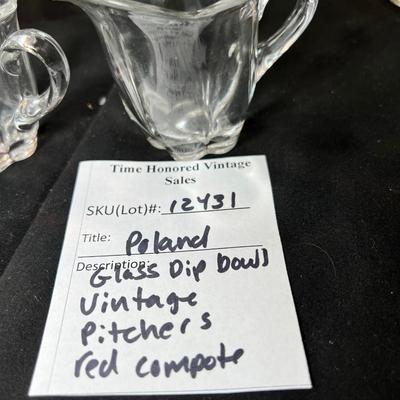 Time Honored Vintage
Sales
SKU(Lot)#: 12431
Title: Poland
Description:
Glass Dip bowl
Vintage
Pitchers
red compote